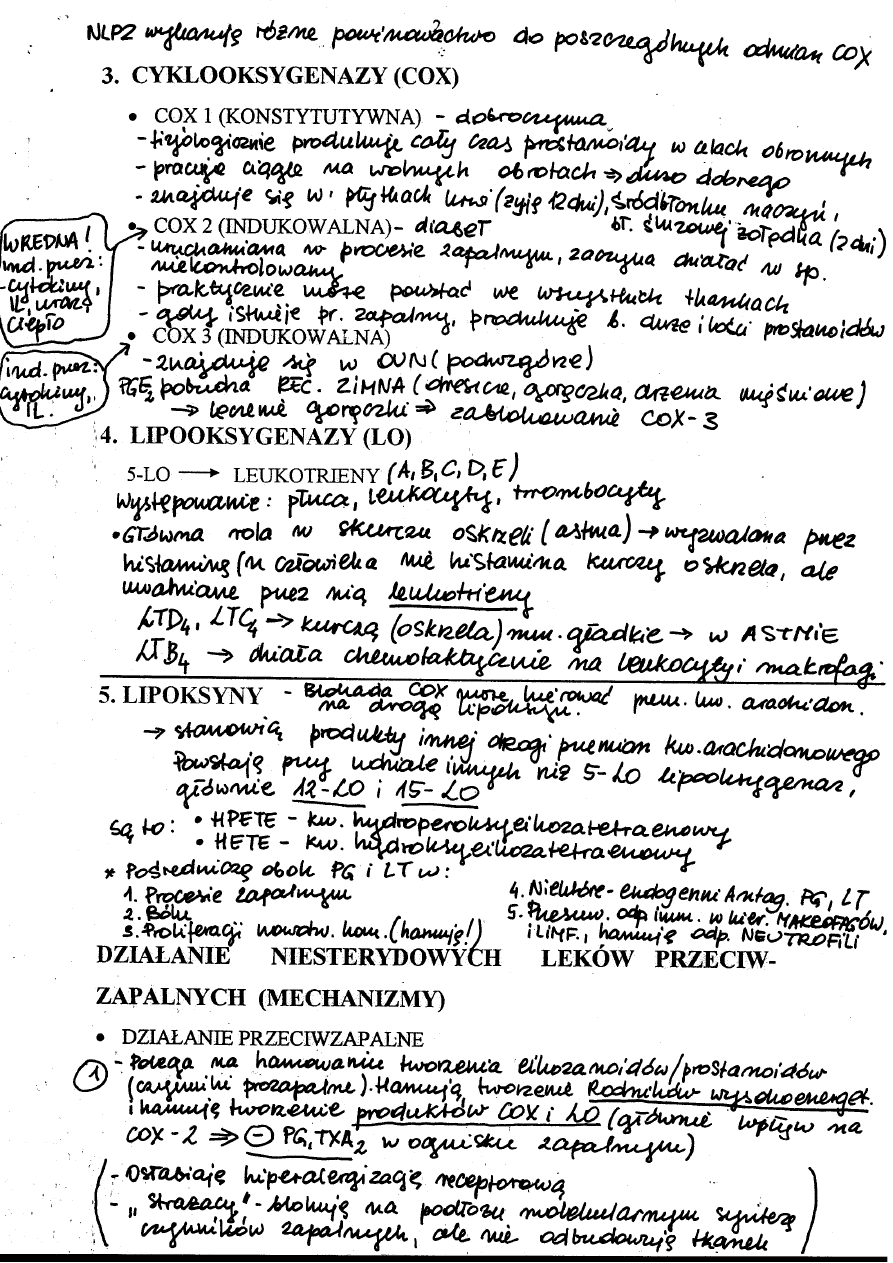 NLPZ wykazują różne powinowactwo do poszczególnych odmian COX
3. CYKLOOKSYGENAZY (COX)
• COX 1 (KONSTYTUTYWNA) - dobroczynna
- fizjologicznie produkuje cały czas prostanoidy w celach obronnych
- pracuje ciągle na wolnych obrotach ⇒ dużo dobrego
- znajduje się w: płytkach krwi (żyją 12 dni), śródbłonku naczyń,
bł. śluzowej żołądka (2 dni)
• COX 2 (INDUKOWALNA) - diabeł
WREDNA!
ind. przez:
- cytokiny,
IL, uraz,
ciepło
- uruchamiana w procesie zapalnym, zaczyna działać w sp.
niekontrolowany
- praktycznie może powstać we wszystkich tkankach
- gdy istnieje pr. zapalny, produkuje b. duże ilości prostanoidów
• COX 3 (INDUKOWALNA)
ind. przez:
cytokiny,
IL.
- znajduje się w OUN (podwzgórze)
PGE2 pobudza REC. ZIMNA (dreszcze, gorączka, drżenia mięśniowe)
→ leczenie gorączki ⇒ zablokowanie COX-3
4. LIPOOKSYGENAZY (LO)
5-LO → LEUKOTRIENY (A, B, C, D, E)
Występowanie: płuca, leukocyty, trombocyty
• Główna rola w skurczu oskrzeli (astma) → wyzwalana przez
histaminę (u człowieka nie histamina kurczy oskrzela, ale
uwalniane przez nią leukotrieny
LTD4, LTC4 → kurczą (oskrzela) mm. gładkie → w ASTMIE
LTB4 → działa chemotaktycznie na leukocyty i makrofagi
5. LIPOKSYNY - Blokada COX może kierować przem. kw. arachidon.
na drogę lipoksyn.
→ stanowią produkty innej drogi przemian kw. arachidonowego
Powstają przy udziale innych niż 5-LO lipooksygenaz,
głównie 12-LO i 15-LO
Są to: • HPETE - kw. hydroperoksyeikozatetraenowy
• HETE - kw. hydroksyeikozatetraenowy
* Pośredniczą obok PG i LT w:
1. Procesie zapalnym
2. Bólu
3. Proliferacji nowotw. kom. (hamują!)
4. Niektóre - endogenni Antag. PG, LT
5. Przesuw. odp. imm. w kier. MAKROFAGÓW,
i LIMF., hamują odp. NEUTROFILI
DZIAŁANIE NIESTERYDOWYCH LEKÓW PRZECIW-
ZAPALNYCH (MECHANIZMY)
• DZIAŁANIE PRZECIWZAPALNE
① - Polega na hamowaniu tworzenia eikozanoidów/prostanoidów
(czynniki prozapalne). Hamują tworzenie Rodników wysokoenerget.
i hamują tworzenie produktów COX i LO (głównie wpływ na
COX-2 ⇒ ⊖ PG, TXA2 w ognisku zapalnym)
- Osłabiają hiperalergizację receptorową
- „Strażacy" - blokują na podłożu molekularnym syntezę
czynników zapalnych, ale nie odbudowują tkanek